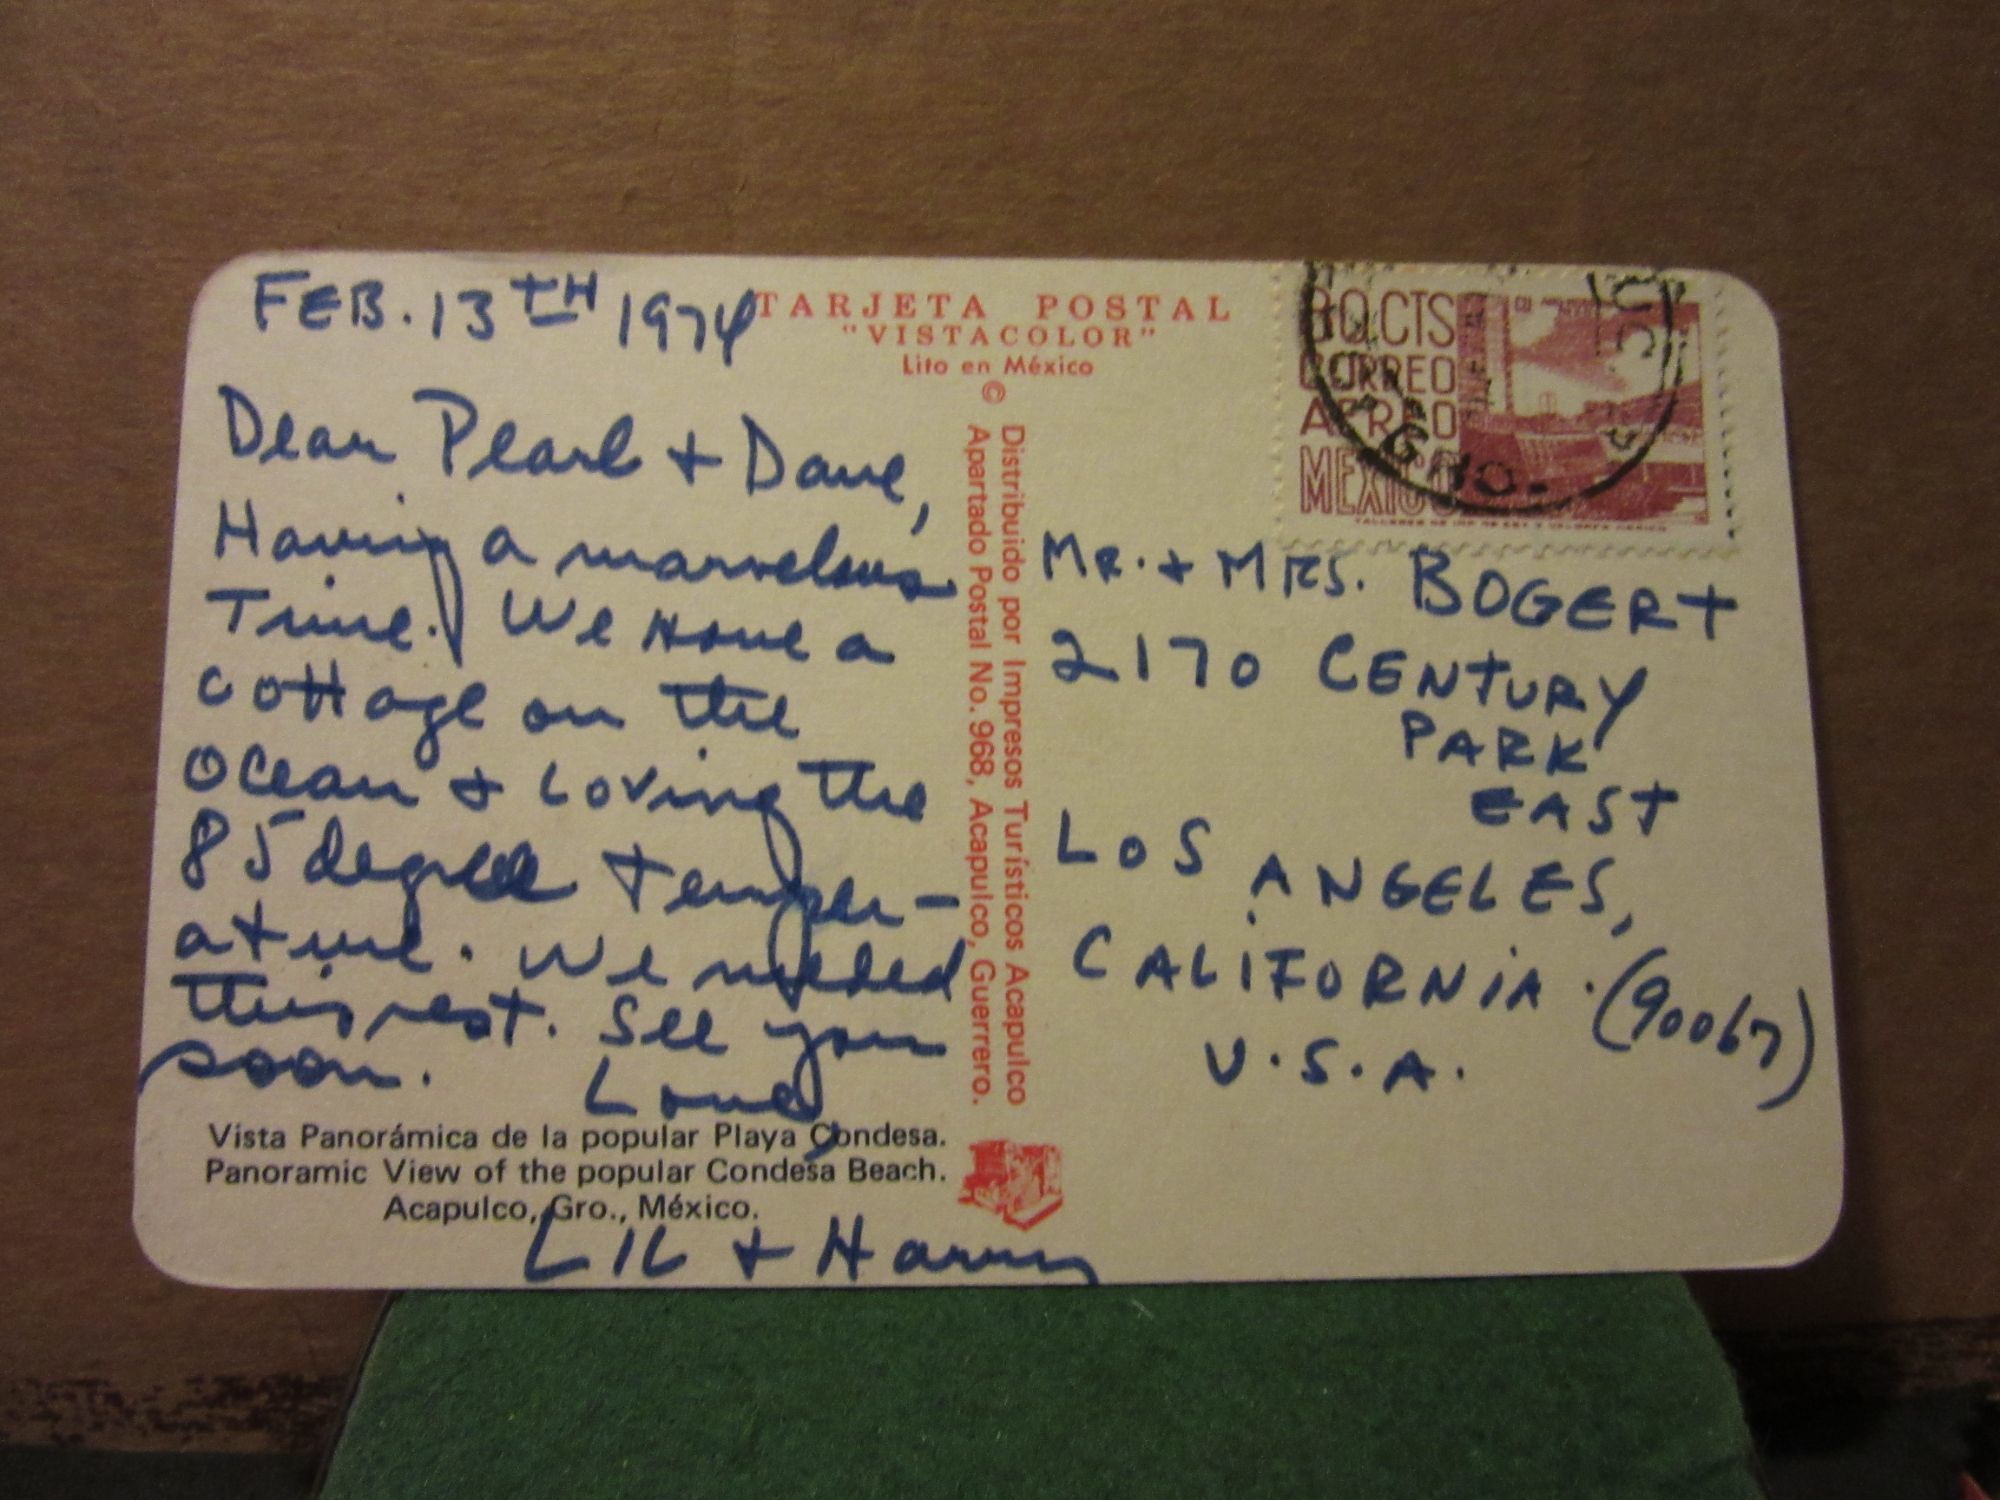 FEB. 13TH 1974
Dear Pearl + Dave,
Having a marvelous
Time. We Have a
cottage on the
Ocean + Loving the
85 degree temper-
ature. We needed
this rest. See you
soon.
Love,
Lil + Harvey
Vista Panorámica de la popular Playa Condesa.
Panoramic View of the popular Condesa Beach.
Acapulco, Gro., México.
TARJETA POSTAL
"VISTACOLOR"
Lito en México
© Distribuido por Impresos Turísticos Acapulco
Apartado Postal No. 968, Acapulco, Guerrero.
80 CTS
CORREO
AEREO
MEXICO
MR. + MRS. BOGERT
2170 CENTURY
PARK
EAST
LOS ANGELES,
CALIFORNIA. (90067)
U.S.A.